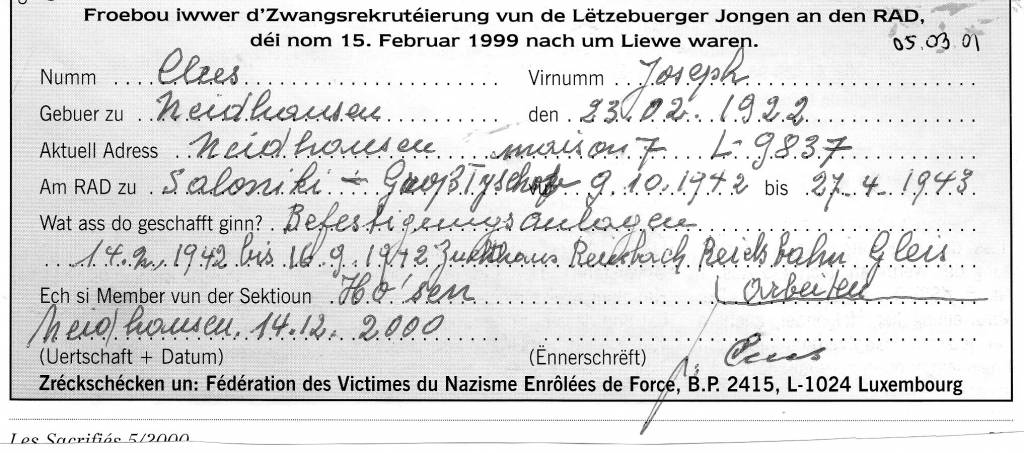 Froebou iwwer d'Zwangsrekrutéierung vun de Lëtzebuerger Jongen an den RAD,
déi nom 15. Februar 1999 nach um Liewe waren.
05.03.01
Numm .... Clees .... Virnumm .. Joseph ....
Gebuer zu .. Neidhausen .... den .. 23.02. 1922
Aktuell Adress .. Neidhausen maison 7 L-9837
Am RAD zu .. Saloniki - 9.10.1942 bis 27.4.1943
Wat ass do geschafft ginn? Befestigungsanlagen
14.2.1942 bis 16.9.1942 Zuchthaus Reinsbach Reichsbahn Gleis
arbeiten
Ech si Member vun der Sektioun . Ho'sen
Neidhausen. 14.12. 2000
(Uertschaft + Datum) (Ënnerschrëft) Clees
Zréckschécken un: Fédération des Victimes du Nazisme Enrôlées de Force, B.P. 2415, L-1024 Luxembourg
Les Sacrifiés 5/2000